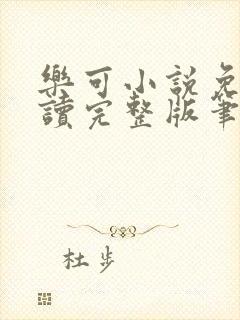 樂可小說免
讀完整版筆
杜步